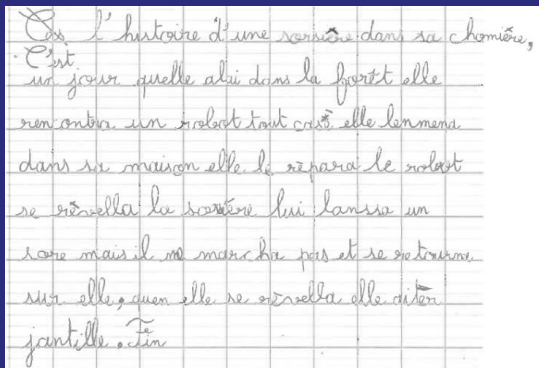 l'histoire d'une sorsière dans sa chomière,
C'est
un jour quelle alai dans la forêt elle
rencontra un robot tout casé elle lenmena
dans sa maison elle le répara le robot
se révella la sorsière lui lanssa un
sore mais il ne marcha pas et se retourna
sur elle, quen elle se révella elle aiter
jantille. Fin